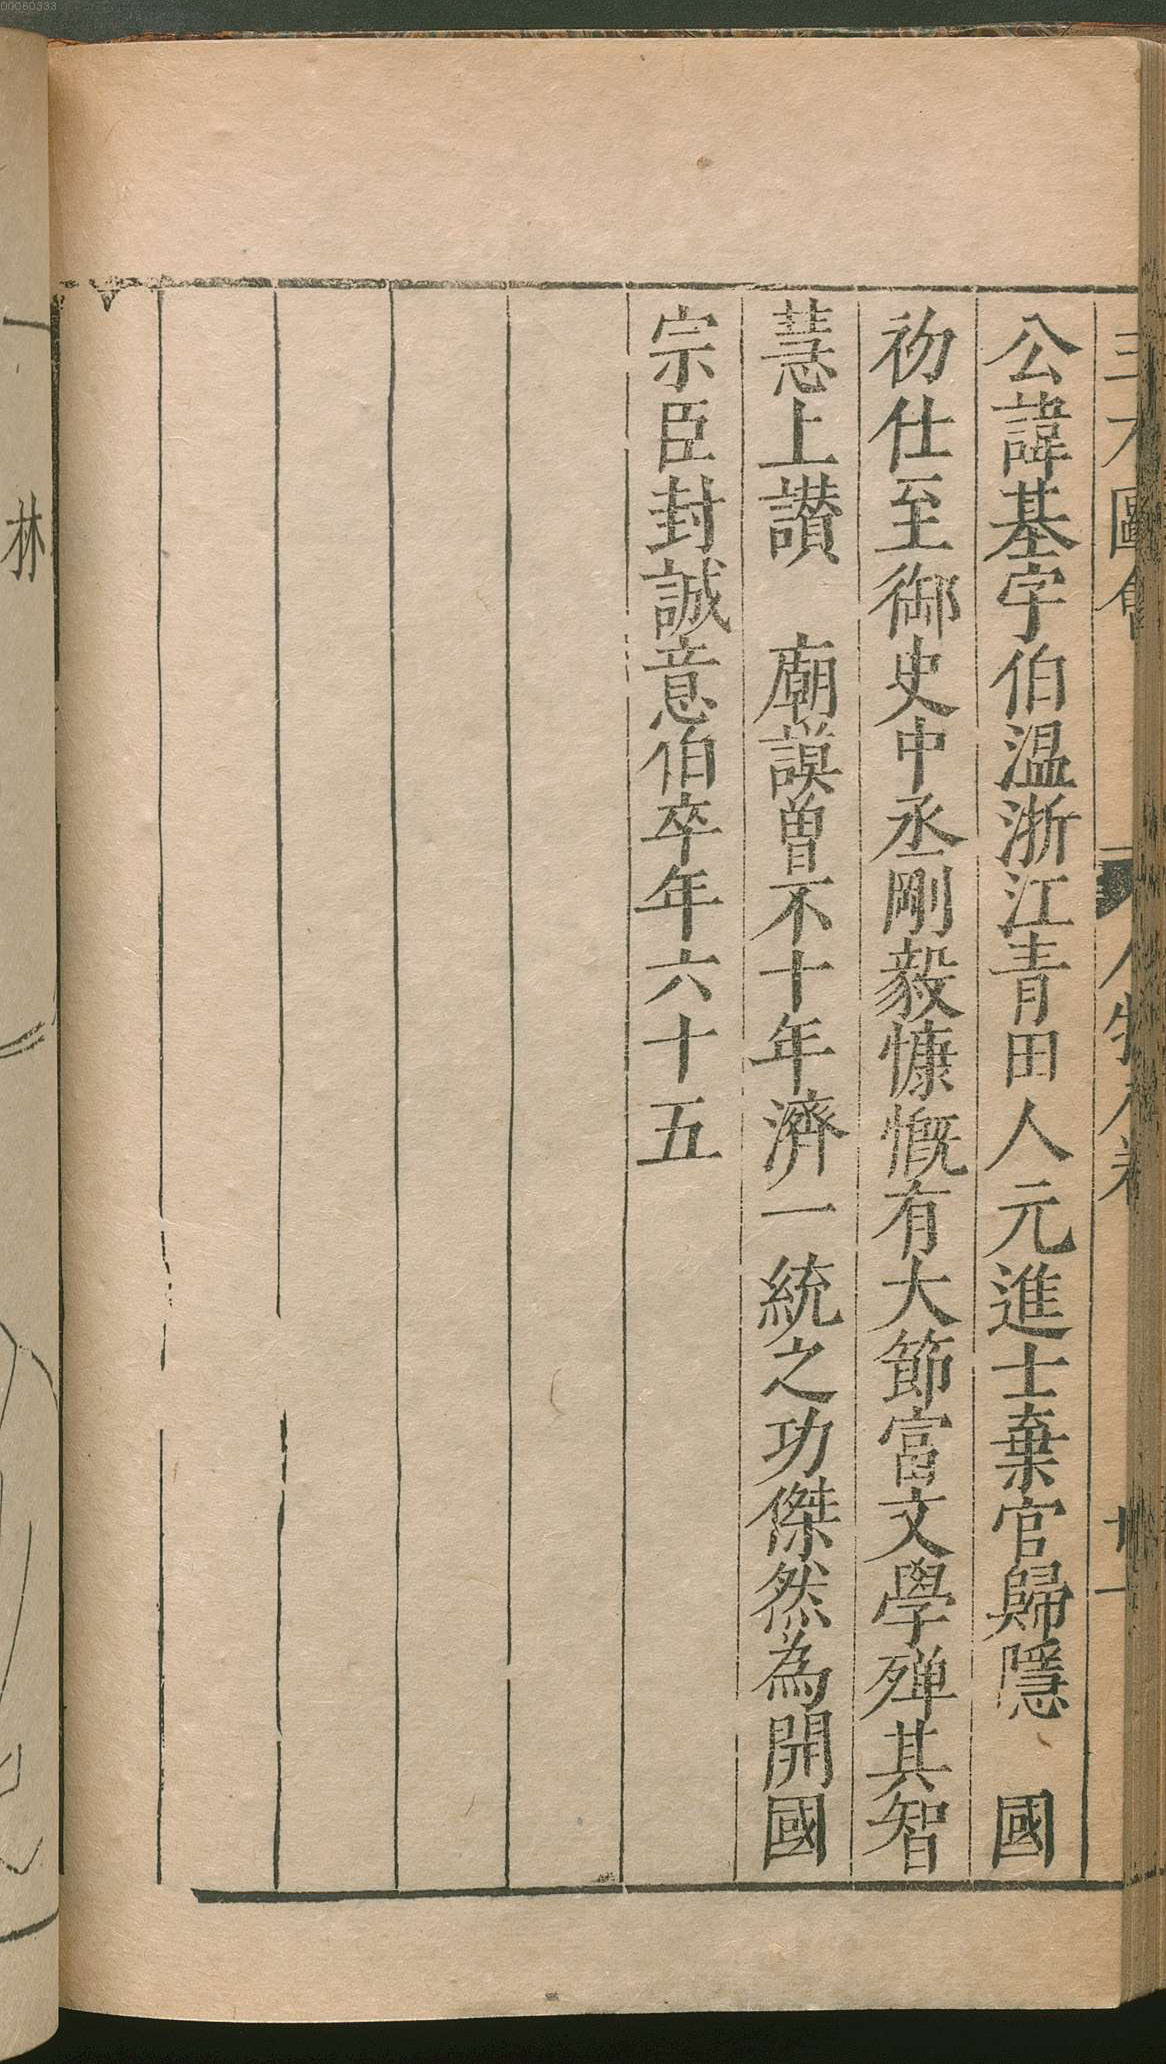 三才圖會 人物八卷 廿一
公諱基字伯温浙江青田人元進士棄官歸隱 國
初仕至御史中丞剛毅慷慨有大節富文學殫其智
慧上讃 廟謨曽不十年濟一統之功傑然為開國
宗臣封誠意伯卒年六十五
林
00060333